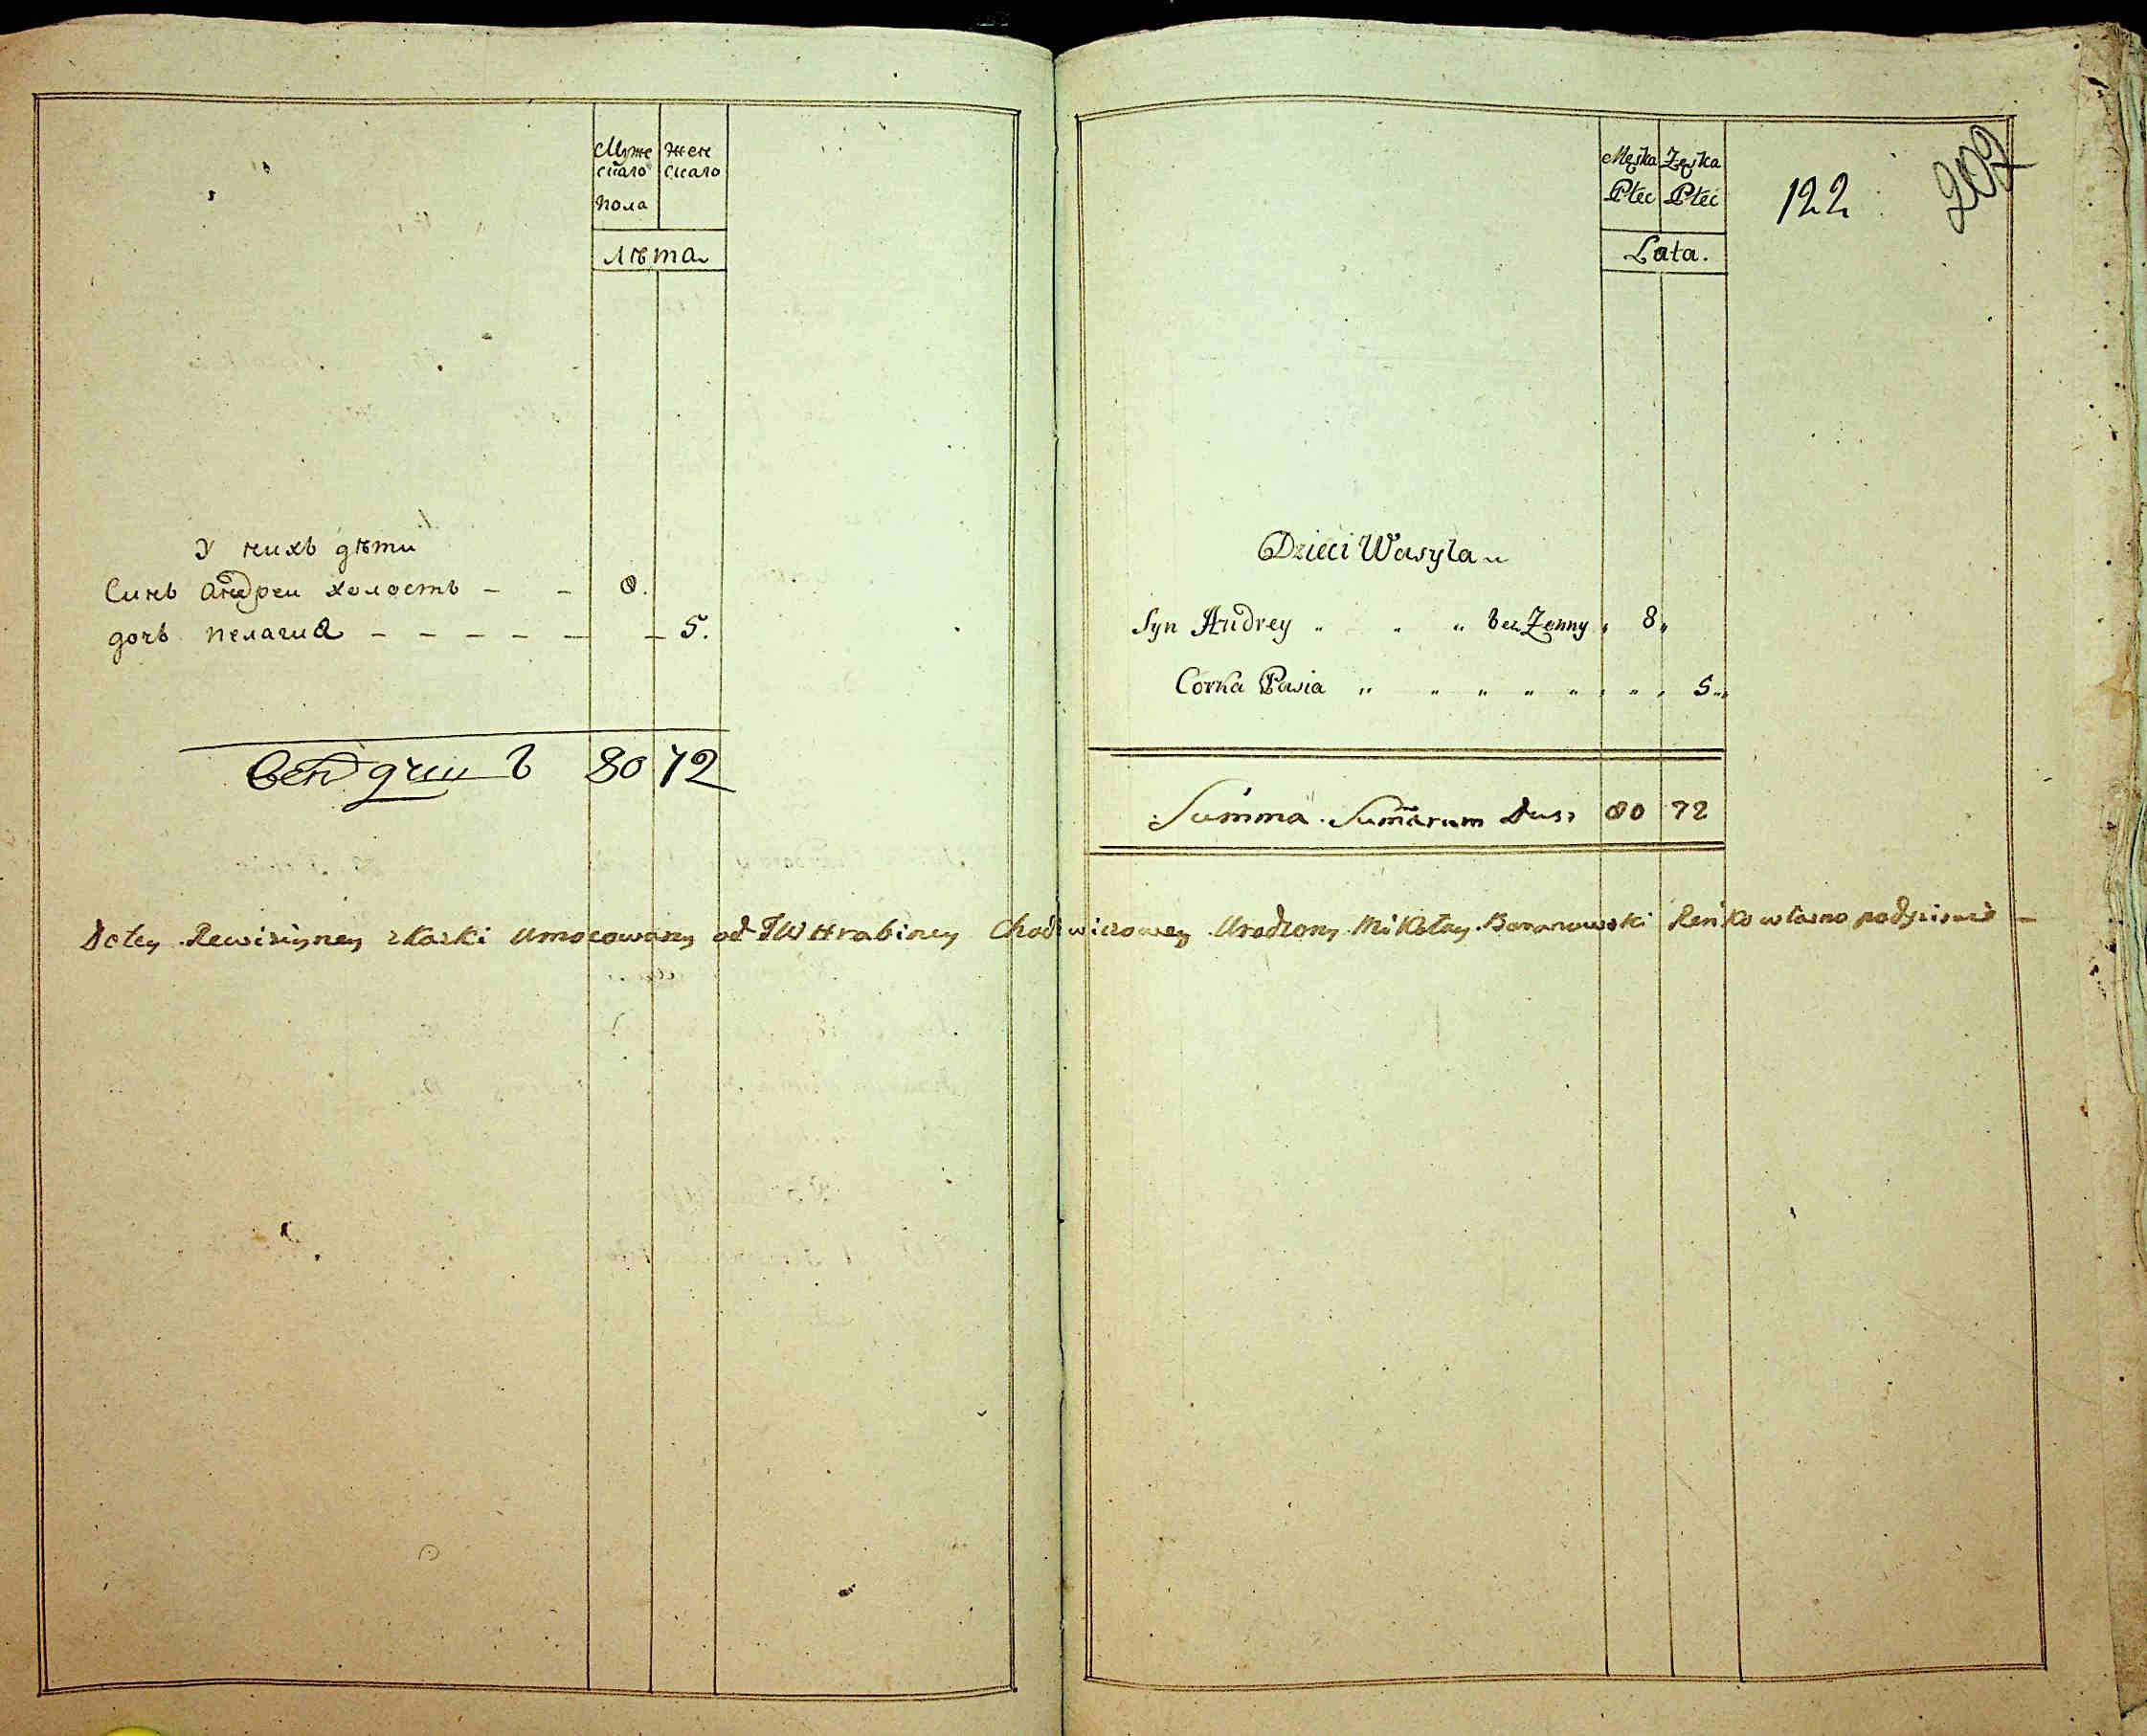 Муже жен
скаго скаго
пола
лѣта
У нихъ дѣти
Синъ Андреи холостъ - - 8.
дочь пелагиа - - - - - - 5.
80 72
Męska Zęska
Płec Płeć
122
209
Lata.
Dzieci Wasyla
Syn Andrey " " " bez Zenny " 8 "
Corka Pasia " " " " " " " " 5 "
Summa Sumarum Dusz 80 72
Do tey Rewizyiney skaski umocowany od JW Hrabiney Chodkiewiczowey Urodzony Mikołay Baranowski Renko własno podpisuie